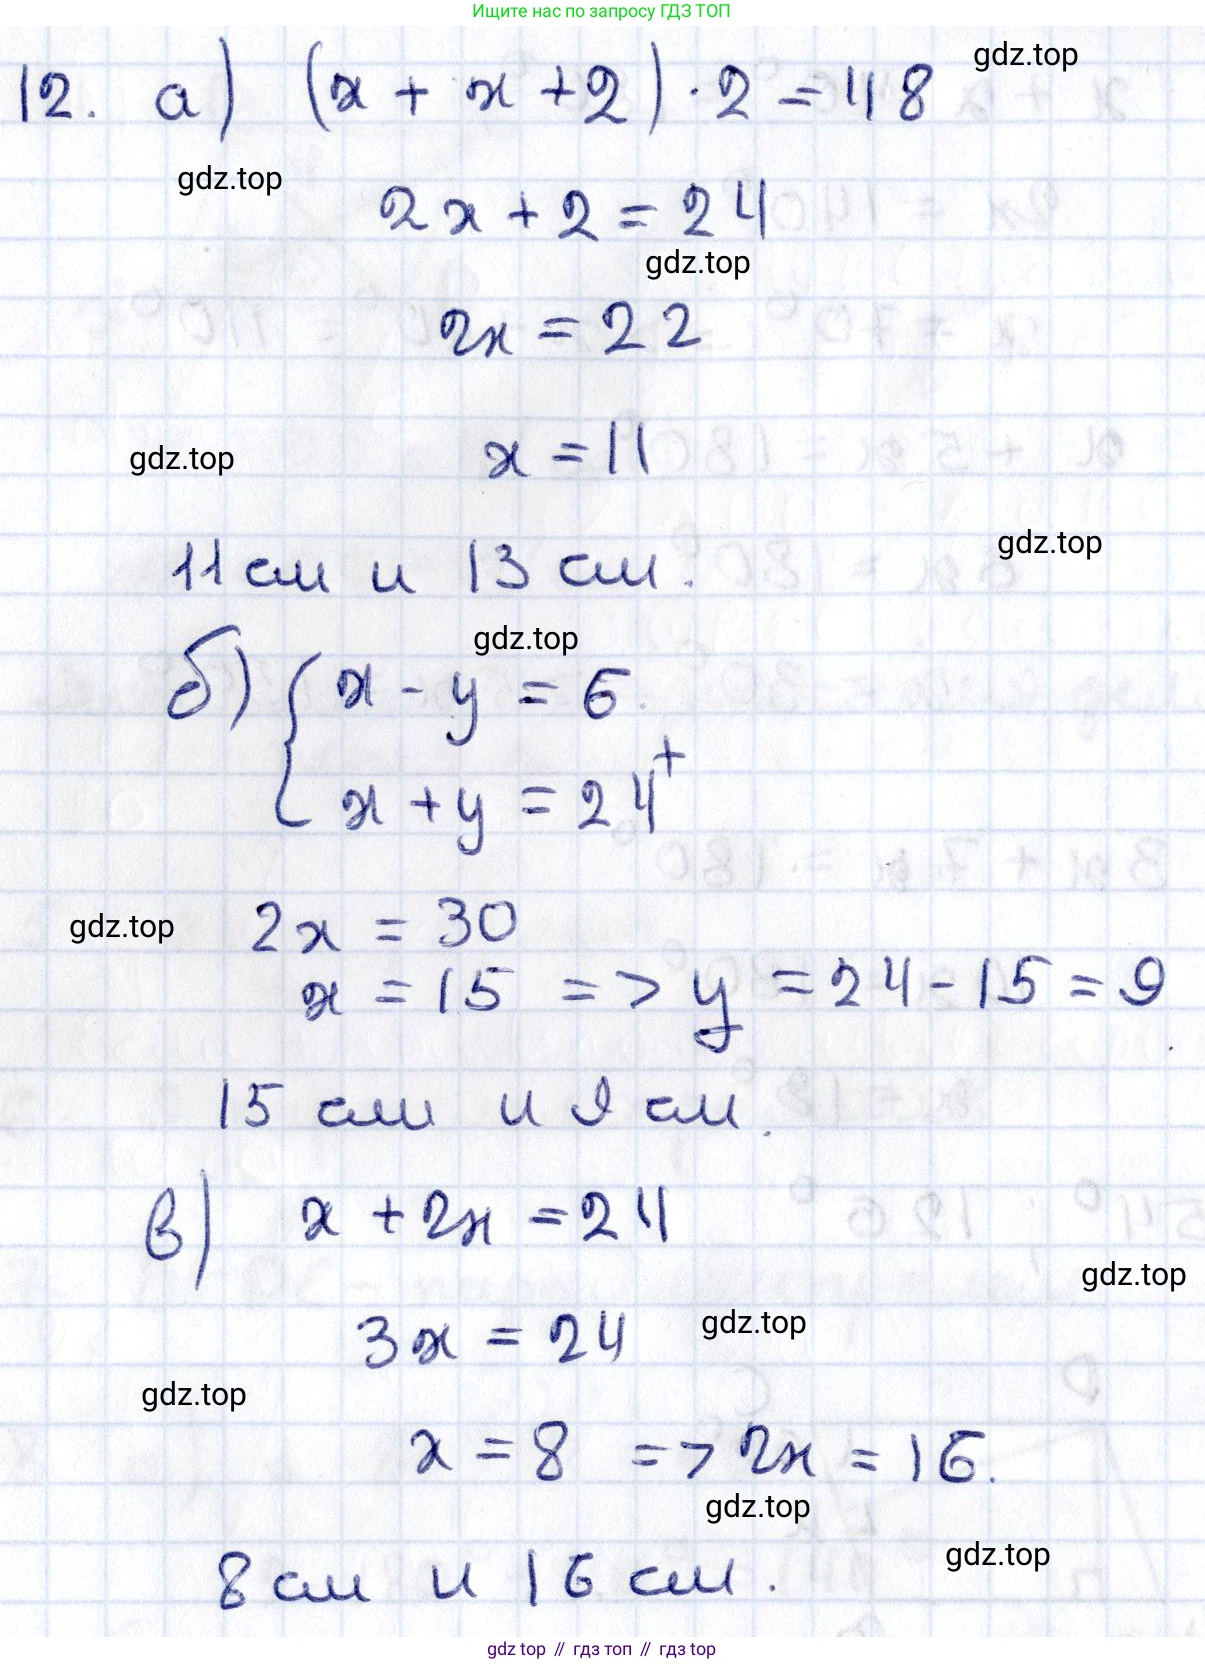 Ищите нас по запросу ГДЗ ТОП
gdz.top
12. а) (x + x + 2) · 2 = 48
gdz.top
2x + 2 = 24
gdz.top
2x = 22
gdz.top
x = 11
gdz.top
11 см и 13 см.
gdz.top
б) { x - y = 6
x + y = 24 +
gdz.top
2x = 30
x = 15 => y = 24 - 15 = 9
15 см и 9 см.
в) x + 2x = 24
gdz.top
3x = 24
gdz.top
gdz.top
x = 8 => 2x = 16.
gdz.top
gdz.top
8 см и 16 см.
gdz top // гдз топ // gdz top